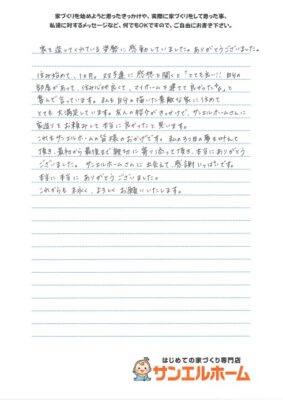 家づくりを始めようと思ったきっかけや、実際に家づくりをして思った事、
私達に対するメッセージなど、何でもOKですので、ご自由にお書き下さい。
家を造ってくれている姿勢に感動していました。ありがとうございました。
住み始めて、1ヶ月。子ども達に感想を聞くと「とても良い!! 自分の
部屋があって、住み心地良くて、マイホームを建てて良かったね。」と
喜んで言っています。私も自分の描いた素敵な家に住めて
とても大満足しています。友人の紹介がきっかけで、サンエルホームさんに
家造りをお願みして本当に良かったと思います。
これもサンエルホームの皆様のおかげです。私の3つ目の夢を叶えて
頂き、最初から最後まで親切に寄り添って頂き、本当にありがとう
ございました。サンエルホームさんに出会えて、感謝いっぱいです。
本当に本当にありがとうございました。
これからも末永く、よろしくお願いいたします。
はじめての家づくり専門店
サンエルホーム